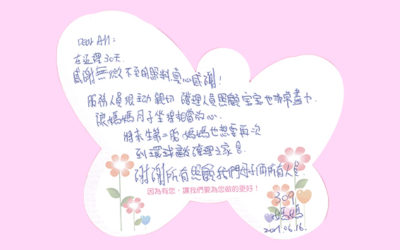 Dear All:
在這裡30天.
感謝無微不至的照料,衷心感謝!
服務人員很主動親切 護理人員照顧寶寶也非常盡力.
讓媽媽月子坐得相當放心.
將來生第二胎,媽媽也想要再次
到環球敦護理之家.
謝謝所有照顧我們母子倆所有人員
因為有您,讓我們要為您做的更好!
309
媽媽
2009.06.16.